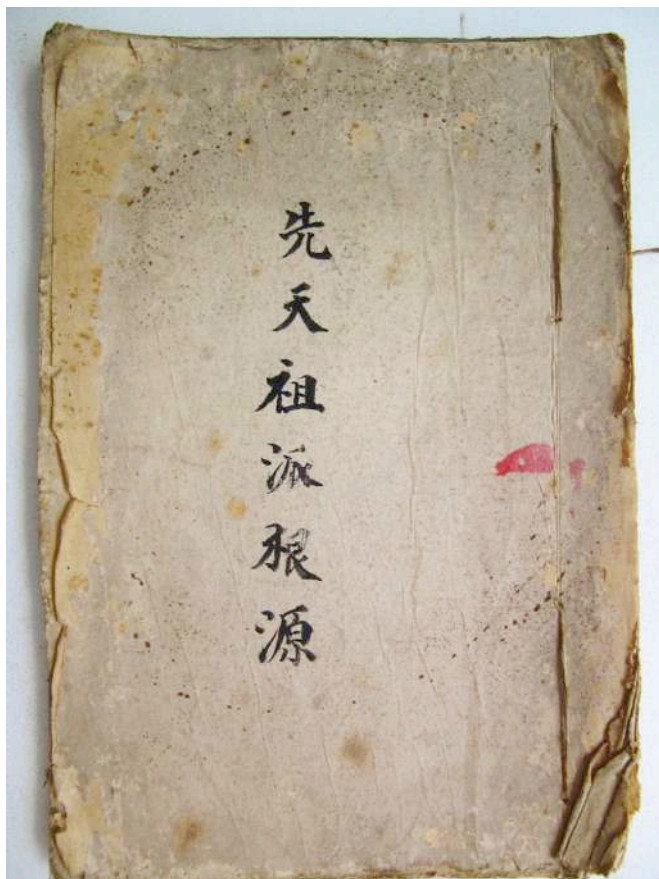 先天祖派根源